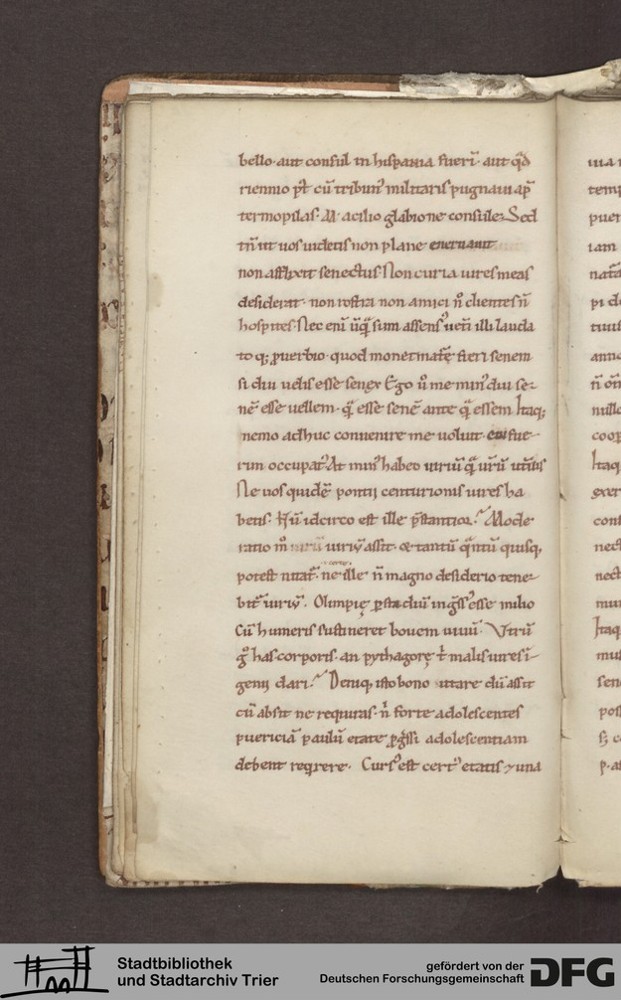 bello· aut consul in hispania fuerī· aut q̄d
riennio p̄t cū tribun' militaris pugnaui ap̄
termopilas· M· acilio glabrione consule· Sed
tn̄ ut uos uidetis non plane eneruauit
non afflixit senectus· Non curia uires meas
desiderat· non rostra non amici n̄ clientes n̄
hospites· Nec enī ūq̄ sum assens' uet̄i illi lauda
to q; ꝓuerbio· quod monet mat̄e fieri senem
si diu uelis esse senex· Ego ū me min' diu se-
nē esse uellem· q̄ esse senē ante q̄ essem· Itaq;
nemo adhuc conuenire me uoluit cui fue-
rim occupat'· At min' habeo uiriū q̄ ur̄ū utr̄uis
Ne uos quidē pontii centurionis uires ha
betis· Nū idcirco est ille p̄stantior· Mode
ratio m̄ uiriū assit· & tantū q̄ntū quisq;
potest nitat̄· ne ille n̄ magno desiderio tene-
bit̄ uiriū· Olimpię ꝑ stadiū inḡss' esse milo
Cū humeris sustineret bouem uiuū· Vtrū
g° has corporis· an pythagorę t̄ malis uires i-
genii dari· Deniq; isto bono utare dū assit
cū absit ne requiras· n̄ forte adolescentes
puericiā paulū etate ꝓg̅ssi adolescentiam
debent reqͥrere· Curs' est cert' etatis ⁊ una
uia
temp
puer
iam
natā
pi d
tuus
anno
n̄ om̄
nullo
coop
Itaq
exer
cons
nect
nect
mun
Itaq
mul
sen
pos
Stadtbibliothek
und Stadtarchiv Trier
gefördert von der
Deutschen Forschungsgemeinschaft
DFG